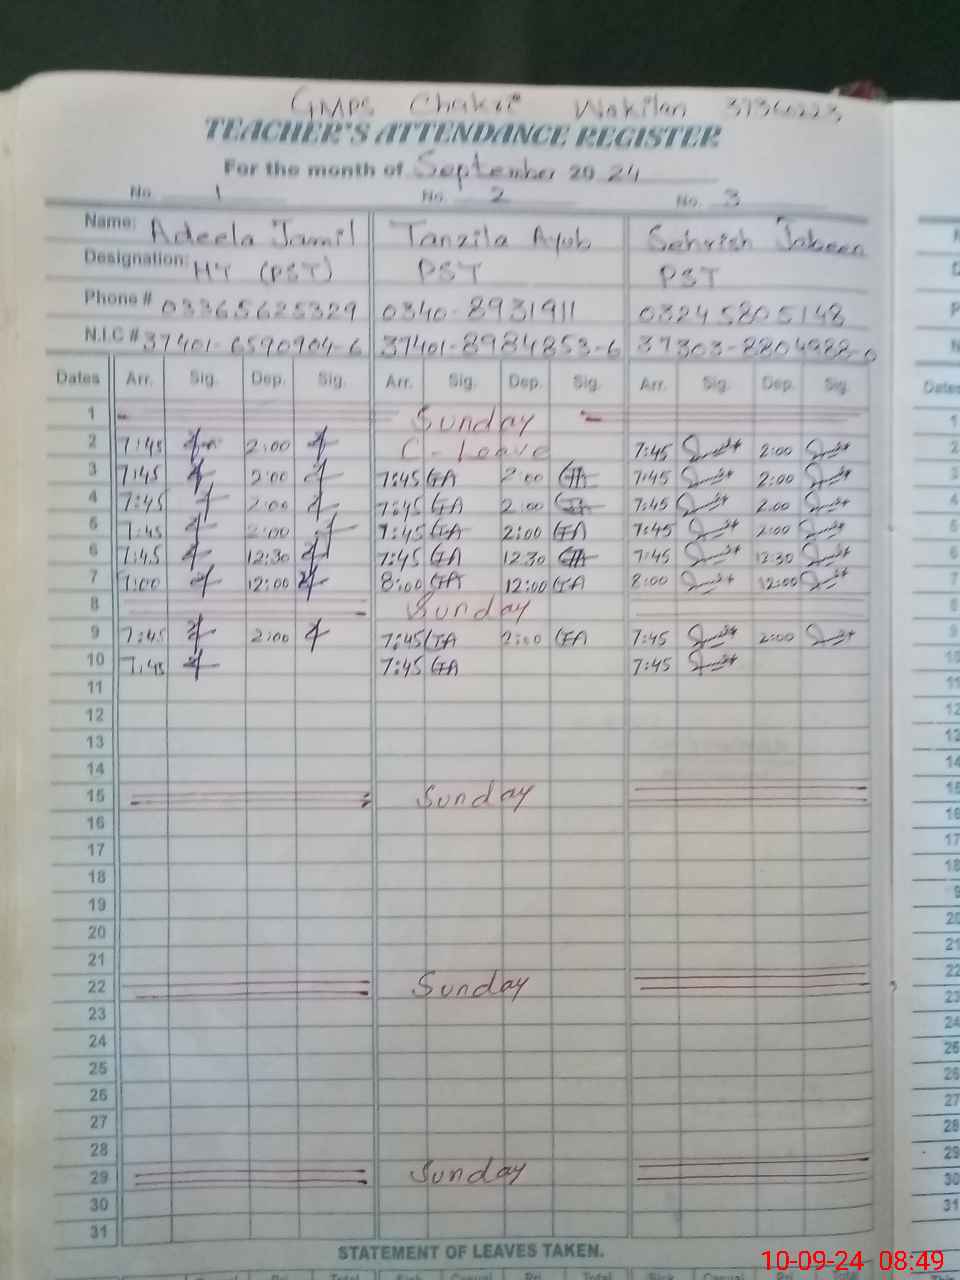 GMPS Chakri Wakilan 37360223
TEACHER'S ATTENDANCE REGISTER
For the month of September 20 24
No. 1 No. 2 No. 3
Name: Adeela Jamil Tanzila Ayub Sehrish Jabeen
Designation: HT (PST) PST PST
Phone # 03365625329 0340-8931911 03245805148
N.I.C # 37401-6590904-6 37401-8984853-6 37303-8804988-0
Dates Arr. Sig. Dep. Sig. Arr. Sig. Dep. Sig. Arr. Sig. Dep. Sig. Dates
1 Sunday 1
2 7:45 2:00 C-Leave 7:45 2:00 2
3 7:45 2:00 7:45 TA 2:00 TA 7:45 2:00 3
4 7:45 2:00 7:45 TA 2:00 TA 7:45 2:00 4
5 7:45 2:00 7:45 TA 2:00 TA 7:45 2:00 5
6 7:45 12:30 7:45 TA 12:30 TA 7:45 12:30 6
7 12:00 8:00 TA 12:00 TA 8:00 12:00 7
8 Sunday 8
9 7:45 2:00 7:45 TA 2:00 TA 7:45 2:00 9
10 7:45 7:45 TA 7:45 10
11 11
12 12
13 12
14 14
15 Sunday 15
16 16
17 17
18 18
19 9
20 20
21 21
22 Sunday 22
23 23
24 24
25 25
26 26
27 27
28 28
29 Sunday 29
30 30
31 31
STATEMENT OF LEAVES TAKEN.
10-09-24 08:49